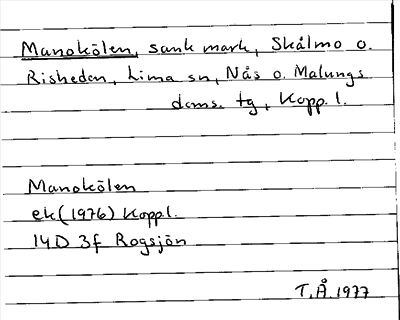 Manokölen, sank mark, Skålmo o.
Risheden, Lima sn, Nås o. Malungs
doms. tg, Kopp. l.
Manokölen
ek (1976) Koppl.
14D 3f Rogsjön
T.Å. 1977